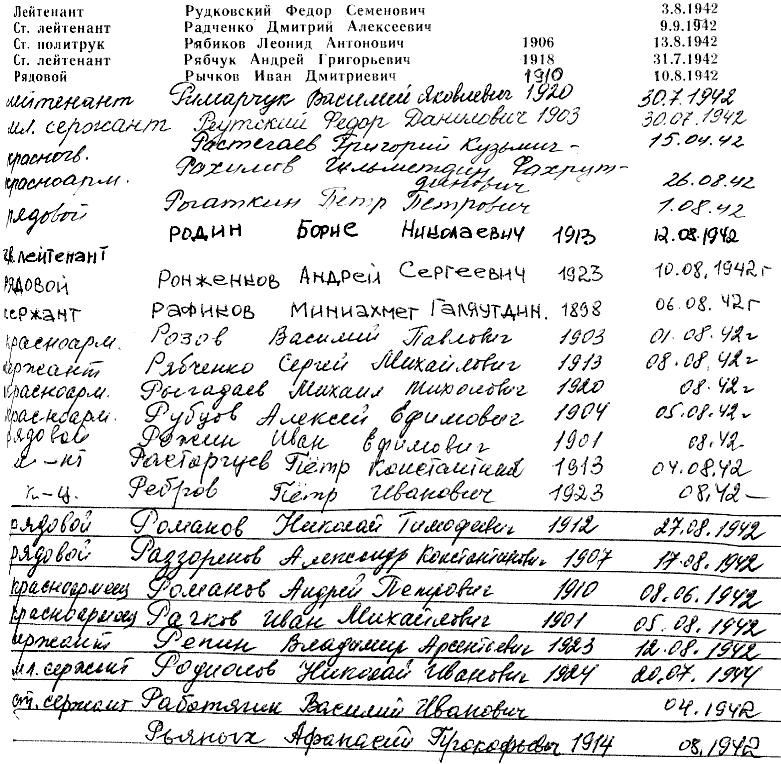 Лейтенант Рудковский Федор Семенович 3.8.1942
Ст. лейтенант Радченко Дмитрий Алексеевич 9.9.1942
Ст. политрук Рябиков Леонид Антонович 1906 13.8.1942
Ст. лейтенант Рябчук Андрей Григорьевич 1918 31.7.1942
Рядовой Рычков Иван Дмитриевич 1910 10.8.1942
лейтенант Римарчук Василий Яковлевич 1920 30.7.1942
мл. сержант Реутский Федор Данилович 1903 30.07.1942
красногв. Растегаев Григорий Кузьмич - 15.04.42
красноарм. Рахимов Гильметдин Фахрут-
динович 26.08.42
рядовой Рогаткин Пётр Петрович 1.08.42
РОДИН БОРИС НИКОЛАЕВИЧ 1913 12.08.1942
гв. лейтенант
РЯДОВОЙ РОНЖЕНКОВ АНДРЕЙ СЕРГЕЕВИЧ 1923 10.08.1942г
сержант РАФИКОВ МИНИАХМЕТ ГАЛЯУТДИН. 1898 06.08.42г
красноарм. Розов Василий Павлович 1903 01.08.42г
сержант Рябченко Сергей Михайлович 1913 08.08.42г
красноарм. Рыгадаев Михаил 1920 08.42г
красноарм. Рубцов Алексей Ефимович 1904 05.08.42г
рядовой Рожин Иван Ефимович 1901 08.42
л-нт Расторгуев Пётр 1913 04.08.42
Ребров Пётр Иванович 1923 08.42-
рядовой Романов Николай Тимофеевич 1912 27.08.1942
рядовой Раззоренов Александр Константинович 1907 17.08.1942
красноармеец Романов Андрей Петрович 1910 08.06.1942
красноармеец Рачков Иван Михайлович 1901 05.08.1942
сержант Репин Владимир Арсентьевич 1923 12.08.1942
мл. сержант Родионов Николай Иванович 1924 20.07.1944
ст. сержант Работягин Василий Иванович 04.1942
Рьяных Афанасий Прокофьевич 1914 08.1942